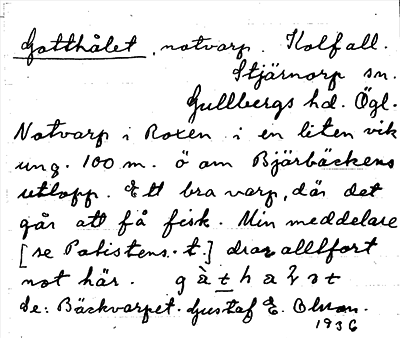 Gotthålet, notvarp. Kolfall.
Stjärnorp sn.
Gullbergs hd. Ögl.
Notvarp i Roxen i en liten vik
ung. 100 m. ö om Bjärbäckens
utlopp. Ett bra varp, där det
går att få fisk. Min meddelare
[se Patistens. t.] drar alltfort
not här.
Se: Bäckvarpet. Gustaf E. Olsson.
1936